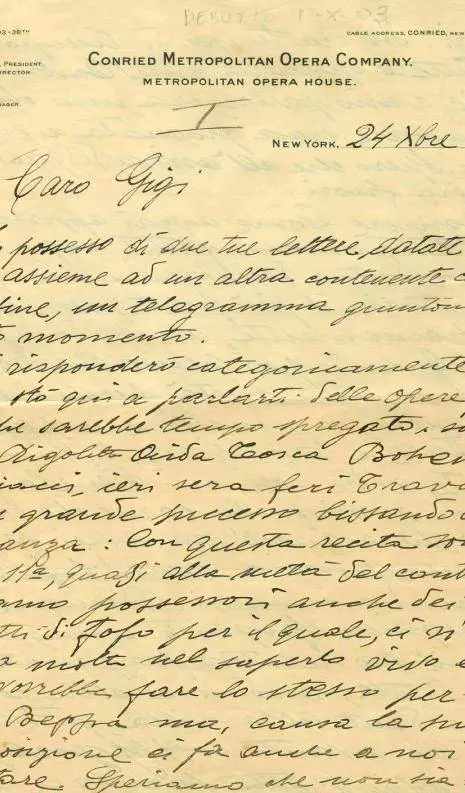 DEBUTTO X-03
03-38TH
CABLE ADDRESS, CONRIED, NEW
, PRESIDENT.
DIRECTOR.
CONRIED METROPOLITAN OPERA COMPANY.
METROPOLITAN OPERA HOUSE.
AGER.
I
NEW YORK, 24 Xbre
Caro Gigi
possesso di due tue lettere, datate
assieme ad un altra contenente
un telegramma
momento.
risponderò categoricamente
stò qui a parlarti delle opere
sarebbe tempo spregato.
Rigoletto Aida Tosca Bohem
ieri sera feci Travi
grande successo bissando
anza: Con questa recita
11ª, quasi alla metà del cont
possessori anche dei
di Fofo per il quale, ci
molto nel saperlo vivo e
vorrebbe fare lo stesso per
Beppa ma, causa la
osizione ci fà anche a noi
tare. Speriamo che non sia